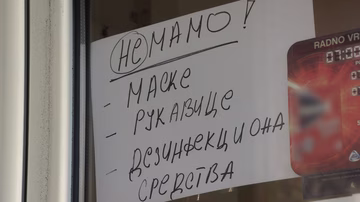 НЕМАМО!
- МАСКЕ
- РУКАВИЦЕ
- ДЕЗИНФЕКЦИОНА
СРЕДСТВА
RADNO VR
07:00